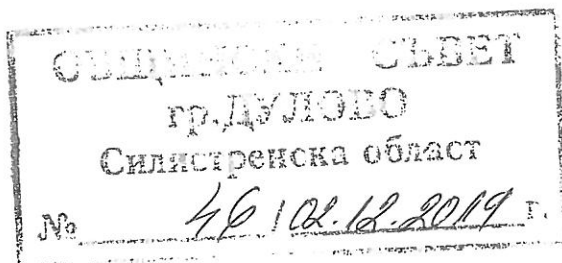 ОБЩИНСКИ СЪВЕТ
гр.ДУЛОВО
Силистренска област
№ 46 / 02.12.2019 г.